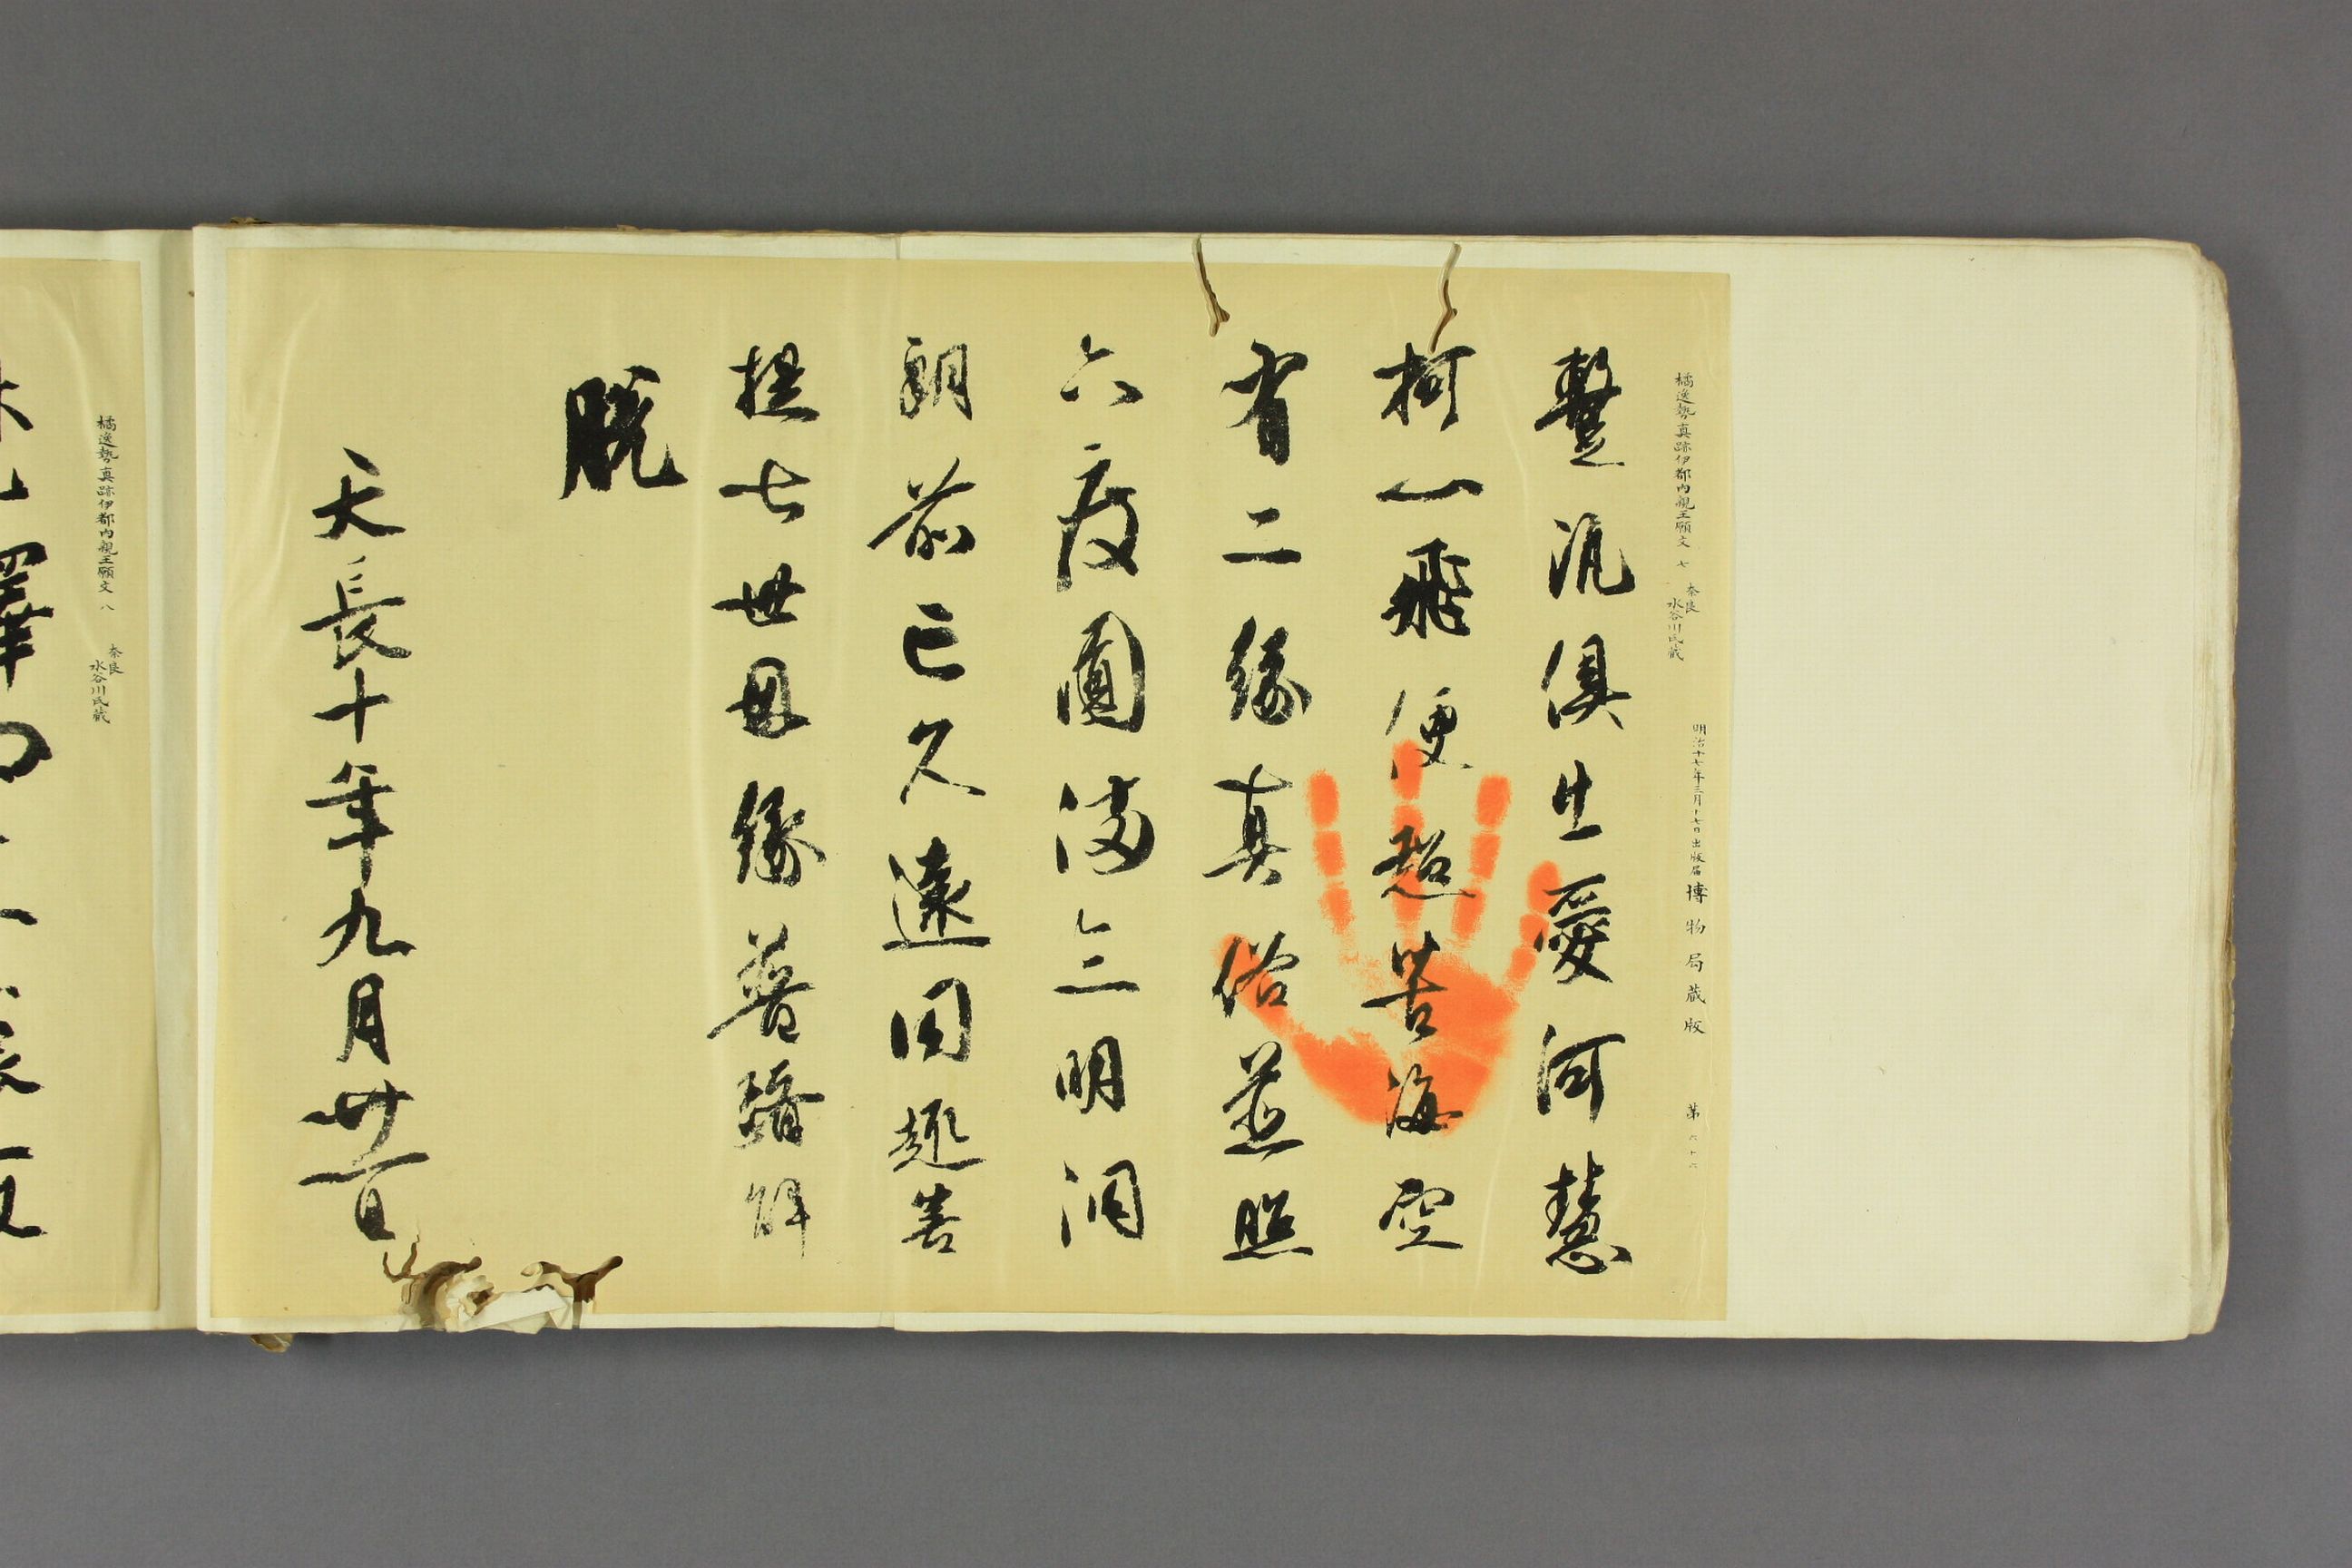 橘逸勢真跡伊都内親王願文 七 奈良 水谷川氏蔵
明治十七年三月十七日出版届 博物局蔵版 第
沉俱生愛河慧
柯一飛便超苦海空
有二緣真俗並照
六度圓滿三明洞
朗前亡久遠同趣菩
提七世母緣普瞻解
脱
天長十年九月廿一日
橘逸勢真跡伊都内親王願文 八 奈良 水谷川氏蔵